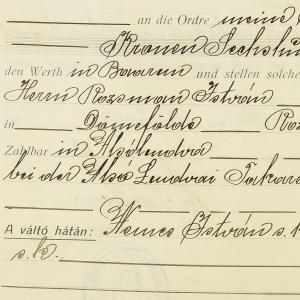 an die Ordre meine
Kronen Sechshu
den Werth in Baarem und stellen solche
Herrn Rozsman István
in Dömefölde Roz
Zahlbar in Alsólendva
bei der Alsó Lendvai Takaré
A váltó hátán: Nemes István s. k.
s. k.